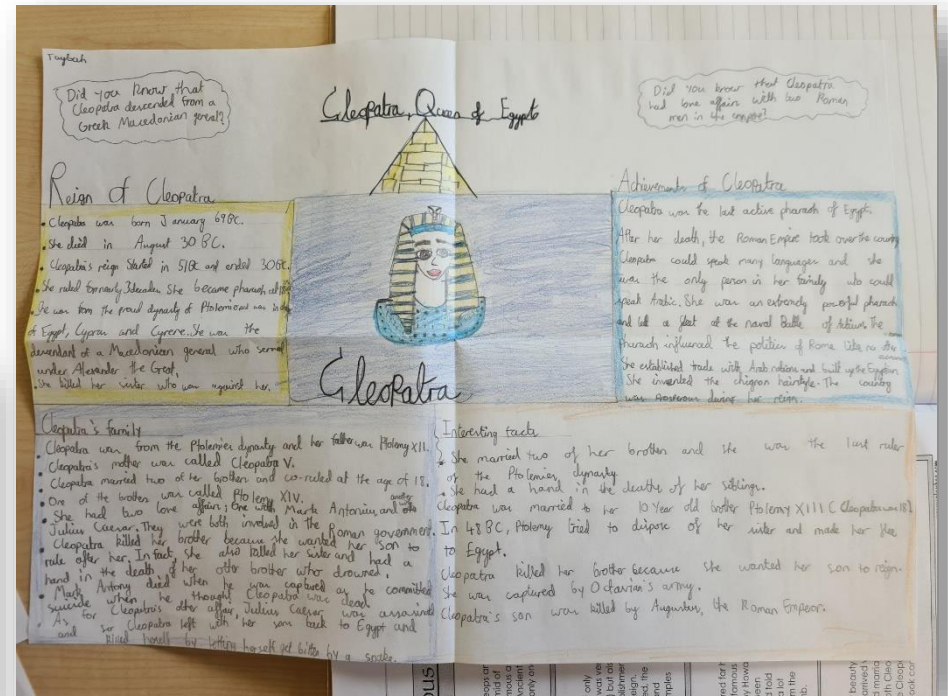 Taybah
Did you know that
Cleopatra descended from a
Greek Macedonian general?
Cleopatra, Queen of Egypt
Did you know that Cleopatra
had love affairs with two Roman
men in the empire?
Reign of Cleopatra
• Cleopatra was born January 69BC.
• She died in August 30 BC.
• Cleopatra's reign started in 51BC and ended 30BC.
• She ruled for nearly 3 decades. She became pharaoh at
• She was from the proud dynasty of Ptolemies
of Egypt, Cyprus and Cyrene. She was the
descendant of a Macedonian general who served
under Alexander the Great.
• She killed her sister who was against her.
Cleopatra
Achievements of Cleopatra
Cleopatra was the last active pharaoh of Egypt.
After her death, the Roman Empire took over the country
Cleopatra could speak many languages and she
was the only person in her family who could
speak Arabic. She was an extremely powerful pharaoh
and led a fleet at the naval Battle of Actium. The
pharaoh influenced the politics of Rome like no
She established trade with Arab nations and built up the Egyptian
She invented the chignon hairstyle. The country
was during her reign.
Cleopatra's family
• Cleopatra was from the Ptolemies dynasty and her father was Ptolemy XII.
• Cleopatra's mother was called Cleopatra V.
• Cleopatra married two of her brothers and co-ruled at the age of 18.
• One of the brothers was called Ptolemy XIV.
• She had two love affairs; one with Mark Antonius and
Julius Caesar. They were both involved in the Roman government.
• Cleopatra killed her brother because she wanted her son to
rule after her. In fact, she also killed her sister and had a
hand in the death of her other brother who drowned.
• Mark Antony died when he was captured as he committed
suicide when he thought Cleopatra was dead.
• As for Cleopatra's other affair, Julius Caesar, was
and Cleopatra left with her son back to Egypt and
killed herself by letting herself get bitten by a snake.
Interesting facts
• She married two of her brothers and she was the last ruler
of the Ptolemies dynasty.
• She had a hand in the deaths of her siblings.
Cleopatra was married to her 10 year old brother Ptolemy XIII (Cleopatra was 18).
In 48BC, Ptolemy tried to dispose of her sister and made her flee
to Egypt.
Cleopatra killed her brother because she wanted her son to reign.
She was captured by Octavian's army.
Cleopatra's son was killed by Augustus, the Roman Emperor.